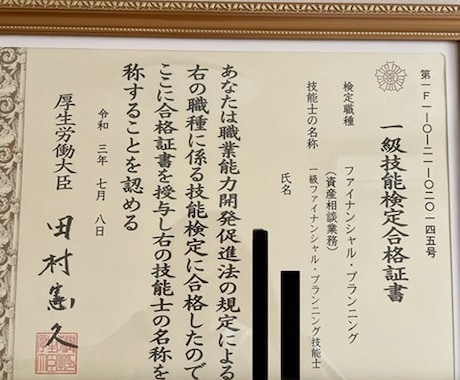 第一F一-〇-一二一-〇二〇一四五号
一級技能検定合格証書
検定職種　ファイナンシャル・プランニング
（資産相談業務）
技能士の名称　一級ファイナンシャル・プランニング技能士
氏名
あなたは職業能力開発促進法の規定による
右の職種に係る技能検定に合格したので
ここに合格証書を授与し右の技能士の名称を
称することを認める
令和　三年　七月　八日
厚生労働大臣　田村憲久